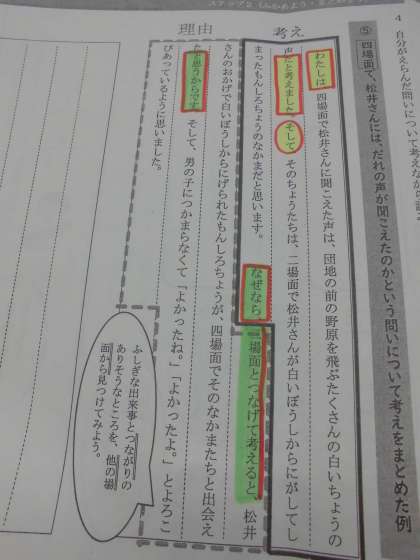 4 自分がえらんだ問いについて考えなが
⑤ 四場面で、松井さんには、だれの声が聞こえたのかという問いについて考えをまとめた例
考え
理由
わたしは、四場面で松井さんに聞こえた声は、団地の前の野原を飛ぶたくさんの白いちょうの
声だと考えました。そして、そのちょうたちは、二場面で松井さんが白いぼうしからにがしてし
まったもんしろちょうのなかまだと思います。
なぜなら、二場面とつなげて考えると、松井
さんのおかげで白いぼうしからにげられたもんしろちょうが、四場面でそのなかまたちと出会え
たと思うからです。そして、男の子につかまらなくて「よかったね。」「よかったよ。」とよろこ
びあっているように思いました。
ふしぎな出来事とつながりの
ありそうなところを、他の場
面から見つけてみよう。